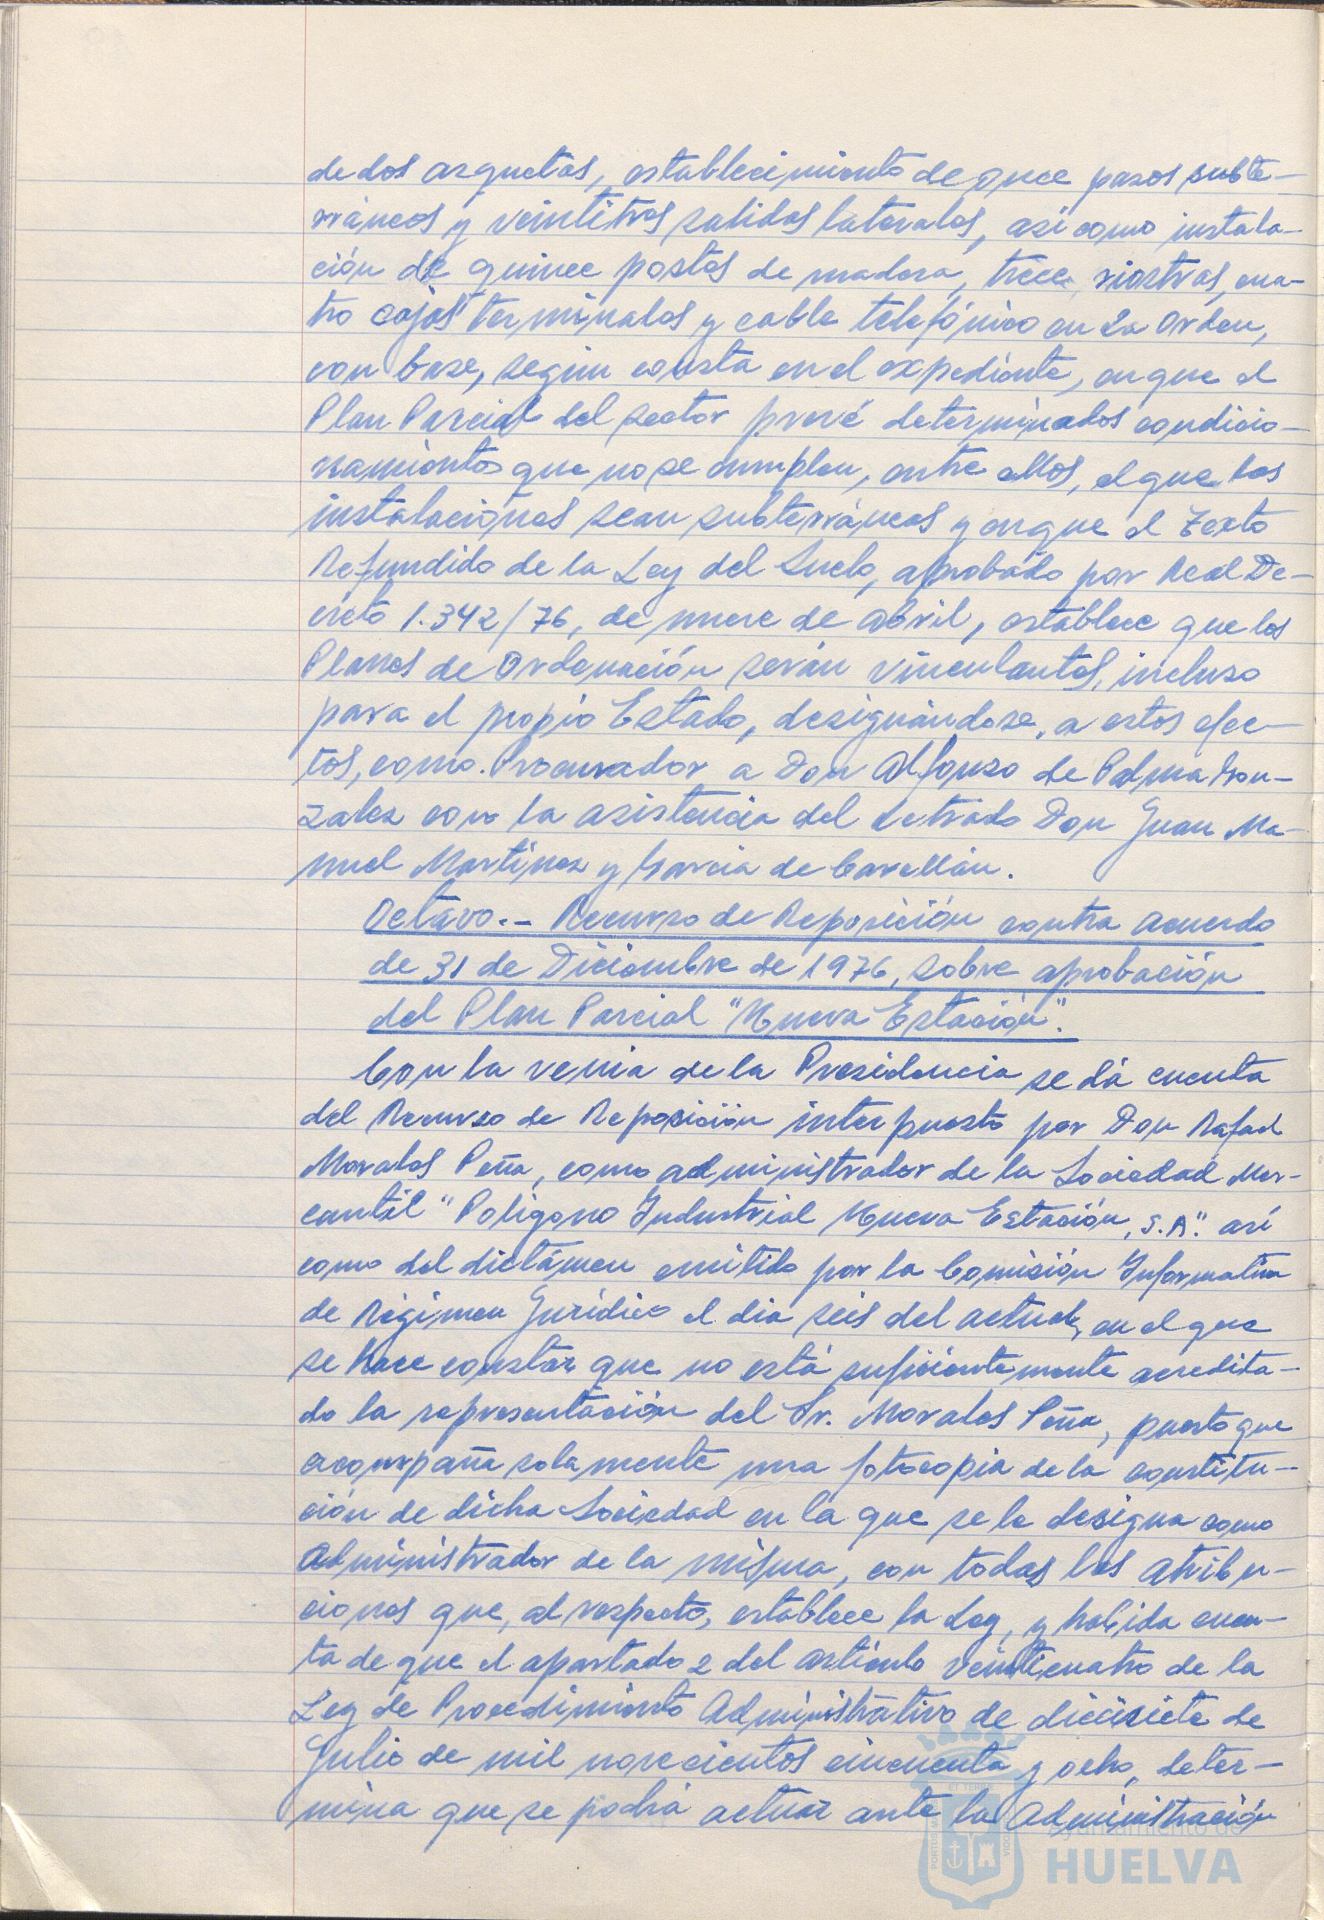 de dos arquetas, establecimiento de once pasos subte-
rráneos y veintitres salidas laterales, asi como instala-
ción de quince postes de madera, trece riostras, cua-
tro cajas terminales y cable telefónico en La Orden,
con base, según consta en el expediente, en que el
Plan Parcial del sector prevé determinados condicio-
namientos que no se cumplen, entre ellos, el que las
instalaciones sean subterráneas y en que el Texto
Refundido de la Ley del Suelo, aprobado por Real De-
creto 1.342/76, de nueve de abril, establece que los
Planes de Ordenación serán vinculantes, incluso
para el propio Estado, designándose, a estos efec-
tos, como Procurador a Don Alfonso de Palma Gon-
zalez con la asistencia del Letrado Don Juan Ma-
nuel Martinez y Garcia de Cavellán.
Octavo.- Recurso de Reposición contra acuerdo
de 31 de Diciembre de 1976, sobre aprobación
del Plan Parcial "Nueva Estación".
Con la venia de la Presidencia se dá cuenta
del Recurso de Reposición interpuesto por Don Rafael
Morales Peña, como administrador de la Sociedad Mer-
cantil "Poligono Industrial Nueva Estación, S.A." asi
como del dictámen emitido por la Comisión Informativa
de Régimen Jurídico el dia seis del actual, en el que
se hace constar que no está suficientemente acredita-
do la representación del Sr. Morales Peña, puesto que
acompaña solamente una fotocopia de la constitu-
ción de dicha Sociedad en la que se le designa como
Administrador de la misma, con todas las atribu-
ciones que, al respecto, establece la Ley, y habida cuen-
ta de que el apartado 2 del artículo veinticuatro de la
Ley de Procedimiento Administrativo de diecisiete de
Julio de mil novecientos cincuenta y ocho, deter-
mina que se podrá actuar ante la Administración
Ayuntamiento de
HUELVA